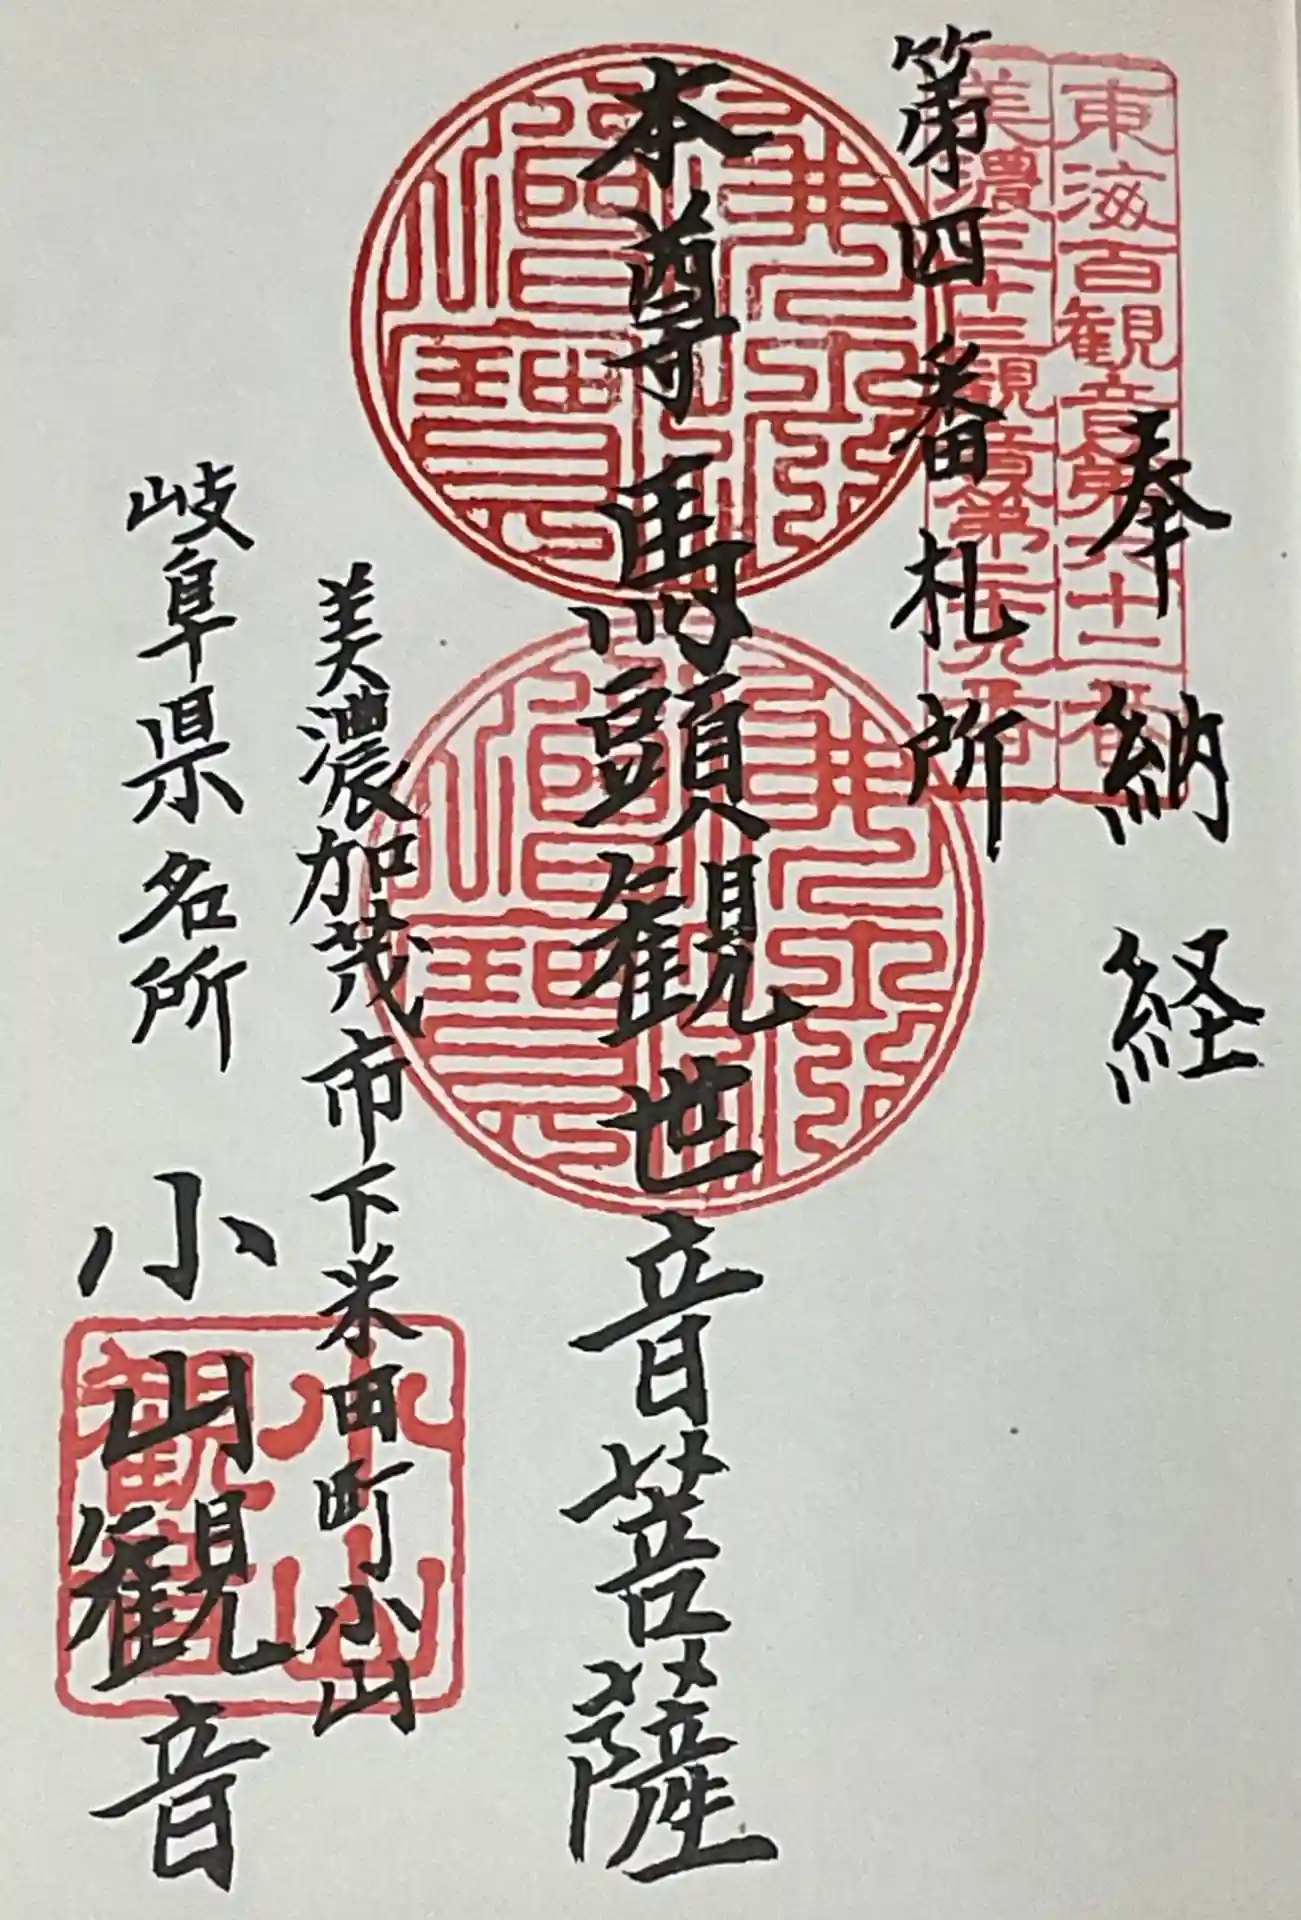 東海百観音第六十二番
美濃三十三観音第二十九番
奉納経
第四番札所
本尊馬頭観世音菩薩
美濃加茂市下米田町小山
岐阜県名所 小山観音
小山
観音